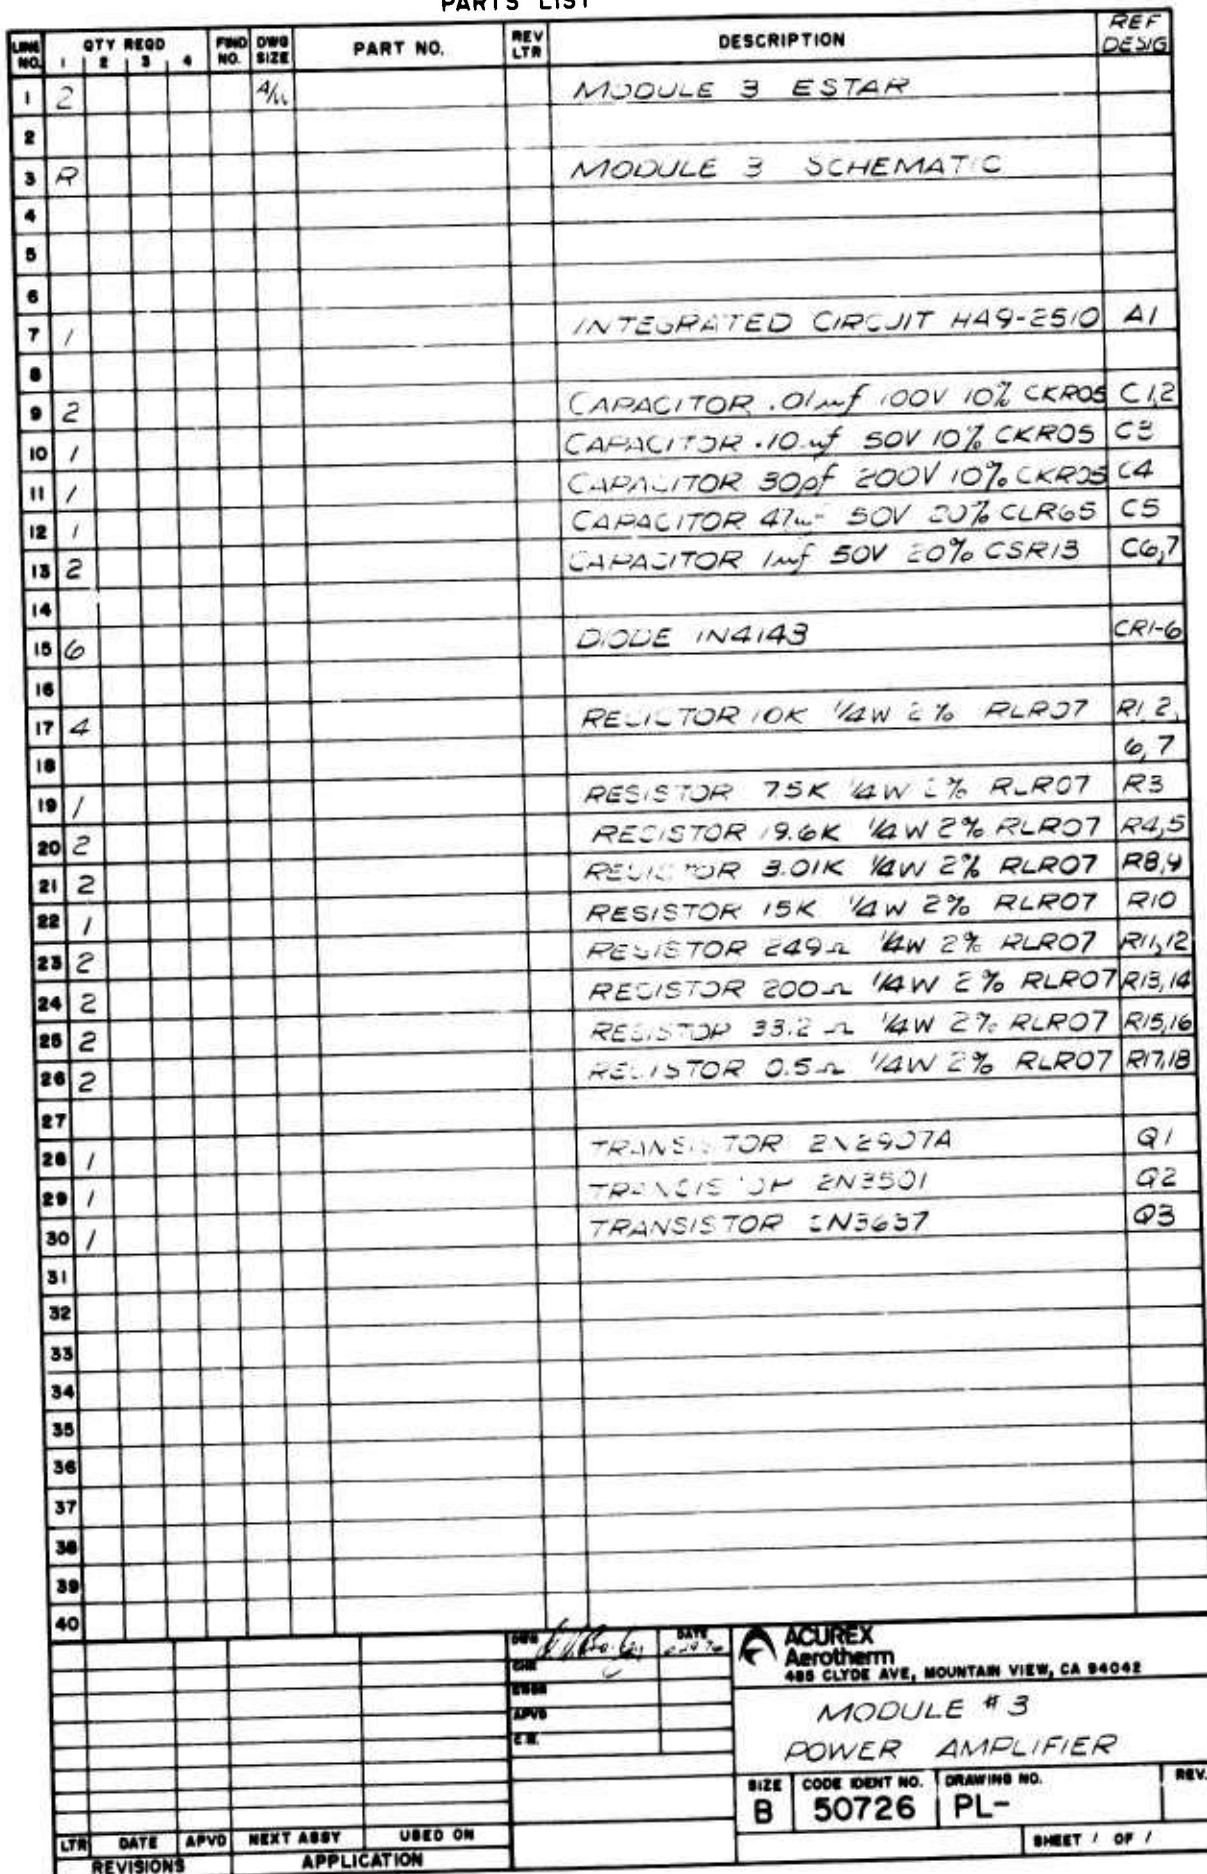 PARTS LIST
LINE NO. QTY REQD 1 2 3 4 FIND NO. DWG SIZE PART NO. REV LTR DESCRIPTION REF DESIG
1 2 MODULE 3 ESTAR
2
3 R MODULE 3 SCHEMATIC
4
5
6
7 1 INTEGRATED CIRCUIT HA9-2510 A1
8
9 2 CAPACITOR .01uf 100V 10% CKR05 C1,2
10 1 CAPACITOR .10uf 50V 10% CKR05 C3
11 1 CAPACITOR 30pf 200V 10% CKR05 C4
12 1 CAPACITOR 50V 20% CLR65 C5
13 2 CAPACITOR 1uf 50V 20% CSR13 C6,7
14
15 6 DIODE 1N4143 CR1-6
16
17 4 RESISTOR 10K 1/4W 2% RLR07 R1,2,
18 6,7
19 1 RESISTOR 75K 1/4W 2% RLR07 R3
20 2 RESISTOR 19.6K 1/4W 2% RLR07 R4,5
21 2 RESISTOR 3.01K 1/4W 2% RLR07 R8,9
22 1 RESISTOR 15K 1/4W 2% RLR07 R10
23 2 RESISTOR 249Ω 1/4W 2% RLR07 R11,12
24 2 RESISTOR 200Ω 1/4W 2% RLR07 R13,14
25 2 RESISTOR 33.2Ω 1/4W 2% RLR07 R15,16
26 2 RESISTOR 0.5Ω 1/4W 2% RLR07 R17,18
27
28 1 TRANSISTOR 2N2907A Q1
29 1 TRANSISTOR 2N3501 Q2
30 1 TRANSISTOR 2N3637 Q3
31
32
33
34
35
36
37
38
39
40
DATE
ACUREX
Aerotherm
485 CLYDE AVE, MOUNTAIN VIEW, CA 94042
APVD
MODULE #3
POWER AMPLIFIER
SIZE CODE IDENT NO. DRAWING NO. REV.
B 50726 PL-
LTR DATE APVD NEXT ASSY USED ON SHEET 1 OF 1
REVISIONS APPLICATION